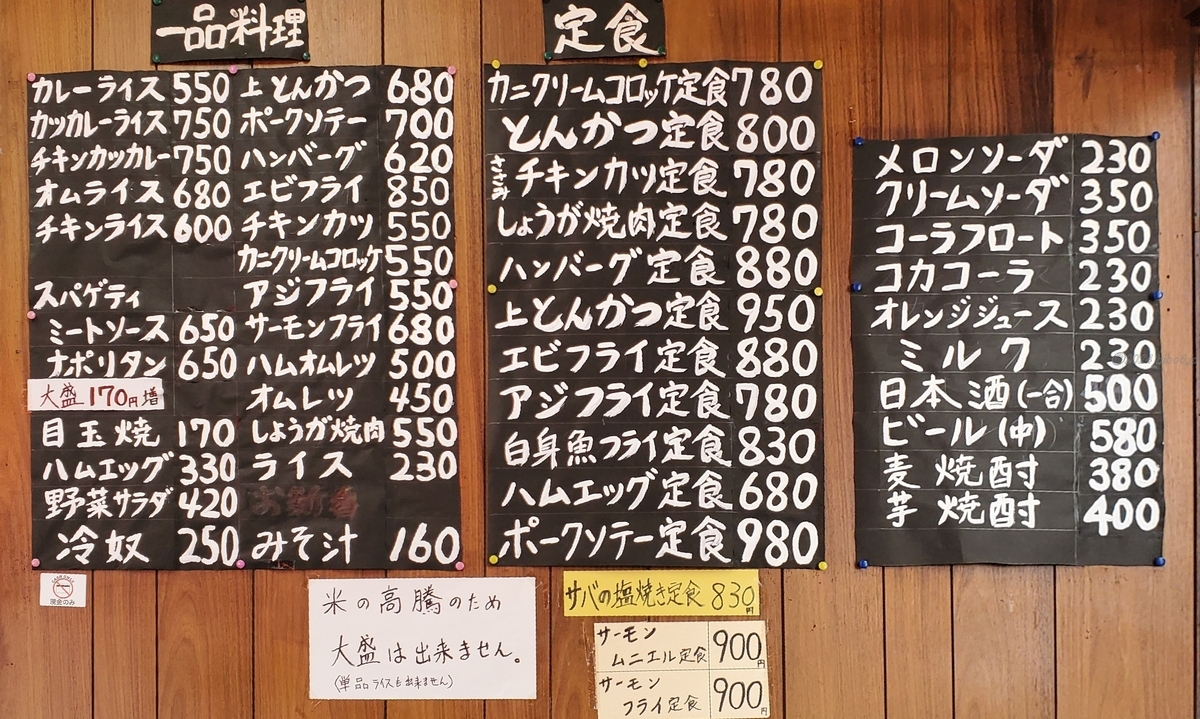 一品料理
カレーライス 550
カツカレーライス 750
チキンカツカレー 750
オムライス 680
チキンライス 600
スパゲティ
ミートソース 650
ナポリタン 650
大盛170円増
目玉焼 170
ハムエッグ 330
野菜サラダ 420
冷奴 250
上とんかつ 680
ポークソテー 700
ハンバーグ 620
エビフライ 850
チキンカツ 550
カニクリームコロッケ 550
アジフライ 550
サーモンフライ 680
ハムオムレツ 500
オムレツ 450
しょうが焼肉 550
ライス 230
お新香
みそ汁 160
現金のみ
米の高騰のため
大盛は出来ません。
(単品ライスも出来ません)
定食
カニクリームコロッケ定食 780
とんかつ定食 800
ささみチキンカツ定食 780
しょうが焼肉定食 780
ハンバーグ定食 880
上とんかつ定食 950
エビフライ定食 880
アジフライ定食 780
白身魚フライ定食 830
ハムエッグ定食 680
ポークソテー定食 980
サバの塩焼き定食 830円
サーモン
ムニエル定食 900円
サーモン
フライ定食 900円
メロンソーダ 230
クリームソーダ 350
コーラフロート 350
コカコーラ 230
オレンジジュース 230
ミルク 230
日本酒(一合) 500
ビール(中) 580
麦焼酎 380
芋焼酎 400